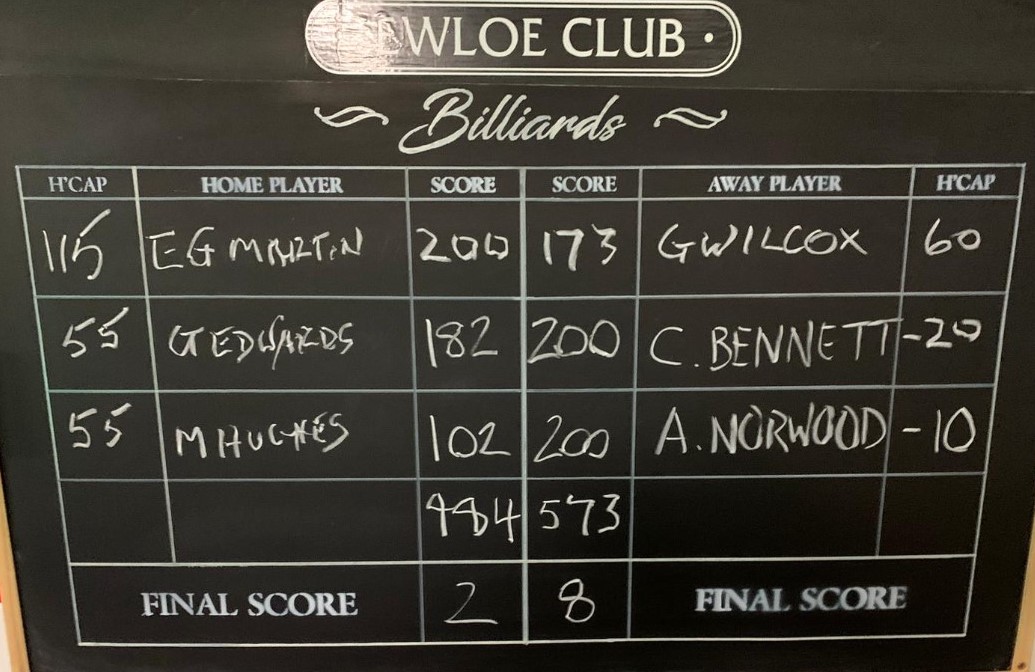 EWLOE CLUB ·
Billiards
H'CAP HOME PLAYER SCORE SCORE AWAY PLAYER H'CAP
115 E G MARTIN 200 173 G WILCOX 60
55 G EDWARDS 182 200 C. BENNETT -20
55 M HUGHES 102 200 A. NORWOOD -10
484 573
FINAL SCORE 2 8 FINAL SCORE